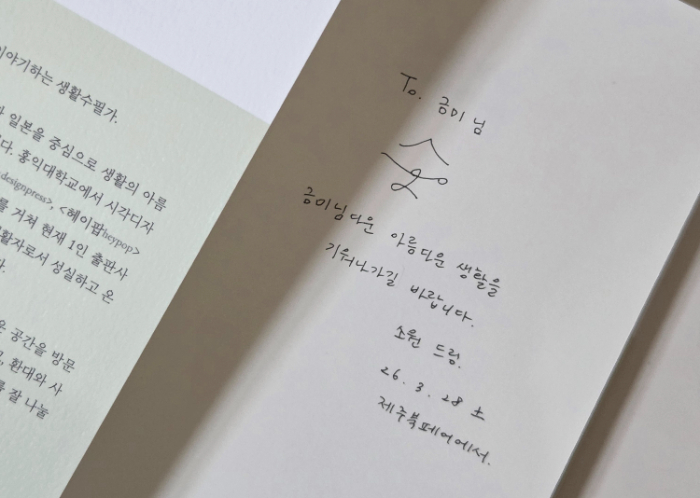 이야기하는 생활수필가.
일본을 중심으로 생활의 아름
다. 홍익대학교에서 시각디자
designpress>, <헤이팝heypop>
를 거쳐 현재 1인 출판사
활자로서 성실하고 온
다.
은 공간을 방문
, 환대와 사
를 잘 나눌
To. 금미 님
금미님다운 아름다운 생활을
키워나가길 바랍니다.
소원 드림.
26. 3. 28 土
제주북페어에서.